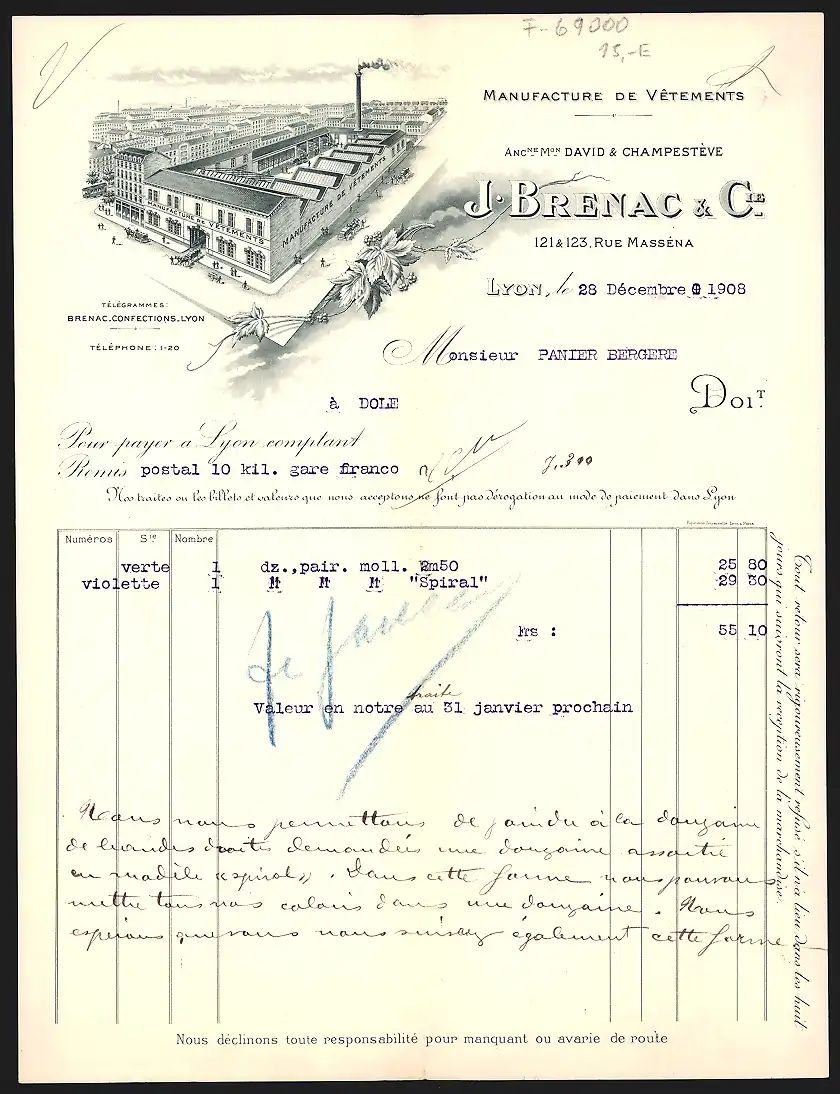 F-69000
15,-E
MANUFACTURE DE VÊTEMENTS
ANCNE MON DAVID & CHAMPESTÈVE
J. BRENAC & CIE
121 & 123, RUE MASSÉNA
MANUFACTURE DE VÊTEMENTS
MANUFACTURE DE VÊTEMENTS
TÉLÉGRAMMES:
BRENAC_CONFECTIONS_LYON
TÉLÉPHONE: 1-20
LYON, le 28 Décembre 1908
Monsieur PANIER BERGERE
à DOLE
DOIT
Pour payer à Lyon comptant
Remis postal 10 kil. gare franco
7.300
Nos traites ou les billets et valeurs que nous acceptons ne font pas dérogation au mode de paiement dans Lyon
Numéros Sie Nombre
verte 1 dz.,pair. moll. 2m50 25 80
violette 1 "Spiral" 29 30
frs : 55 10
traite
Valeur en notre au 31 janvier prochain
Nous nous permettons de joindre à la douzaine
de bandes droites demandées une douzaine assortie
en modèle «spiral». Dans cette forme nous pouvons
mettre tous nos coloris dans une douzaine. Nous
espérons que vous nous suivrez également cette forme
Tout retour sera rigoureusement refusé s'il n'a lieu dans les huit
jours qui suivront la réception de la marchandise.
Nous déclinons toute responsabilité pour manquant ou avarie de route